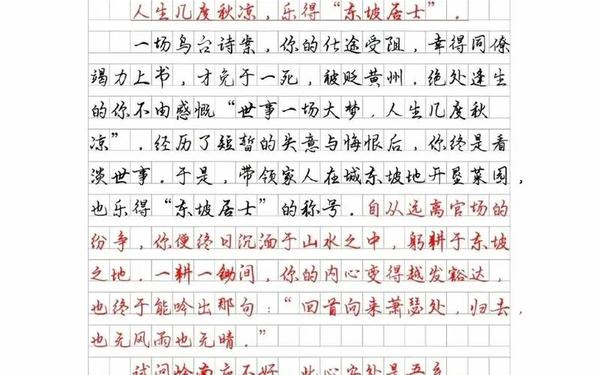 人生几度秋凉，乐得“东坡居士”．
一场乌台诗案，你的仕途受阻，幸得同僚
竭力上书，才免于一死，被贬黄州．绝处逢生
的你不由感慨“世事一场大梦，人生几度秋
凉”．经历了短暂的失意与悔恨后，你终是看
淡世事．于是，带领家人在城东坡地开垦菜园，
也乐得“东坡居士”的称号．自从远离官场的
纷争，你便终日沉湎于山水之中，躬耕于东坡
之地．一耕一锄间，你的内心变得越发豁达，
也终于能吟出那句：“回首向来萧瑟处，归去，
也无风雨也无晴．”
试问岭南应不好，此心安处是吾乡